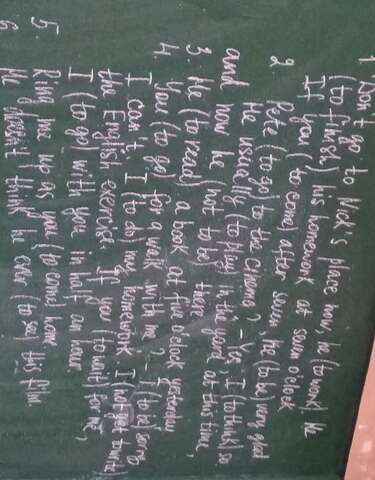 1. Don't go to Nick's place now, he (to work). He
(to finish) his homework at seven o'clock
If you (to come) after seven, he (to be) very glad
2. Pete (to go) to the cinema? - Yes. I (to think) so
He usually (to play) in the yard at this time,
and now he (not to be) there
3. He (to read) a book at five o'clock yesterday
4. You (to go) for a walk with me? - I (to be) sorry
I can't. I (to do) my homework. I (not get to write)
the English exercise. If you (to wait) for me,
I (to go) with you in half an hour
5. Ring me up as you (to come) home
6 He doesn't think he ever (to see) this film.